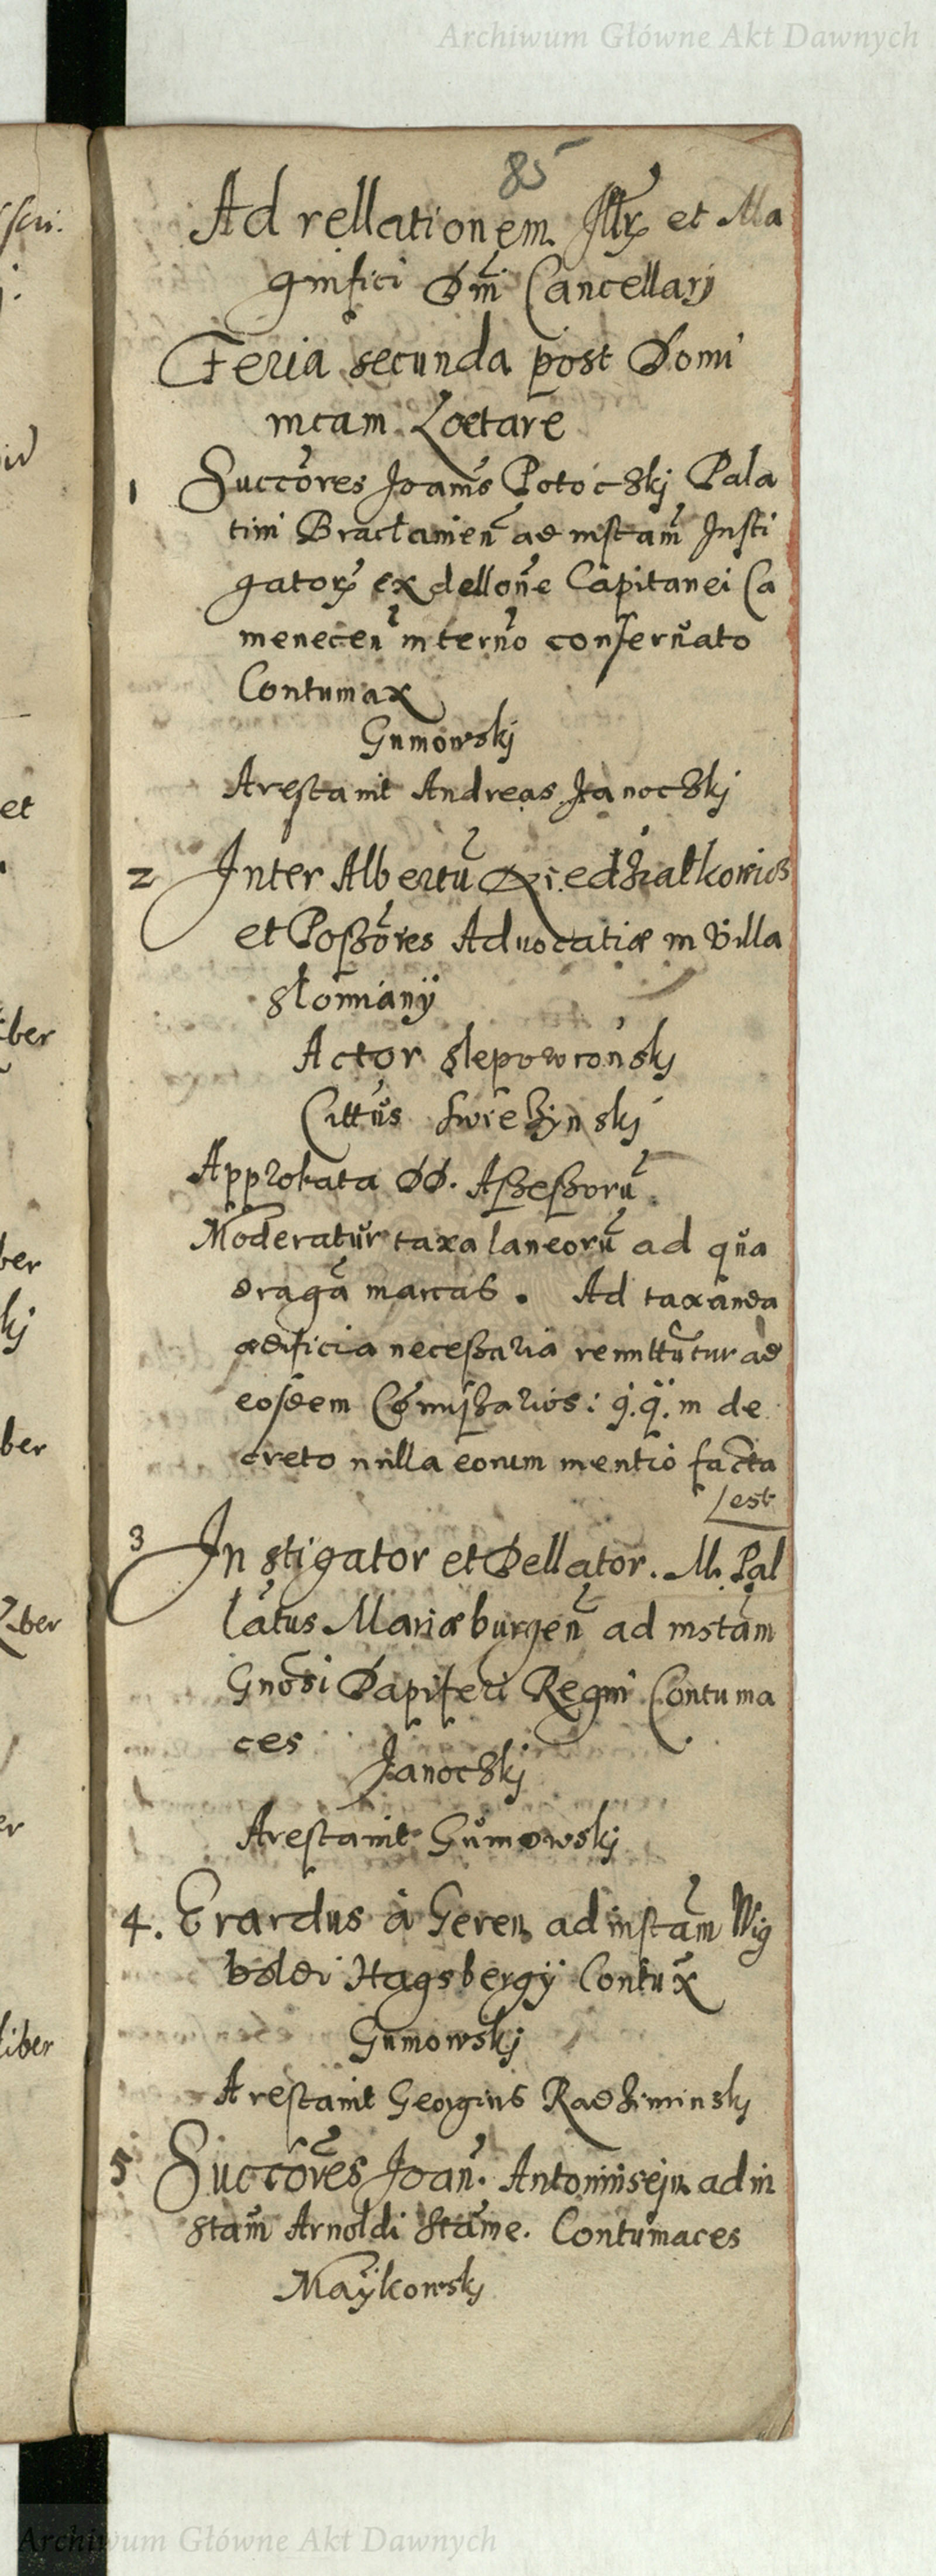 Archiwum Główne Akt Dawnych
85
Ad rellationem Illr̃ et Ma
gnifici Dni Cancellarj
Feria secunda post Domi
nicam Lœtare
1 Succo͂res Joaiñs Potoćzkj Pala
tini Bracłauieñ ad instam̃ Insti
gator ex delloñe Capitanei Ca
meneceñ in terño conseruato
Contumax
Gumowskj
Arestauit Andreas Janoczkj
2 Inter Albertũ
et Poßo͂res Aduocatiæ in villa
słomianÿ
Actor slepowrońskj
Cittũs
Approbata DD. Aßeßorũ
Moderatur taxa laneorũ ad qua
dragã marcas. Ad taxanda
ædificia neceßaria remittũtur ad
eosdem Com̃ißarios: q. q. in de
creto nulla eorum mentio facta
est
3 Instigator et Dellator. M. Pal
latus Mariæburgeñ ad instam̃
Gnõsi Dapiferi Regni Contuma
ces
Janoczkj
Arestauit Gumowskj
4. Erardus à Geren ad instam̃ Wig
boldi Hagsbergÿ Contux̃
Gumowskj
Arestauit Georgius Radziminskj
5 Succo͂res Joañ. ad in
stam̃ Arnoldi Stame. Contumaces
Maÿkowskj
et
ber
ber
kj
ber
ber
er
liber
Archiwum Główne Akt Dawnych